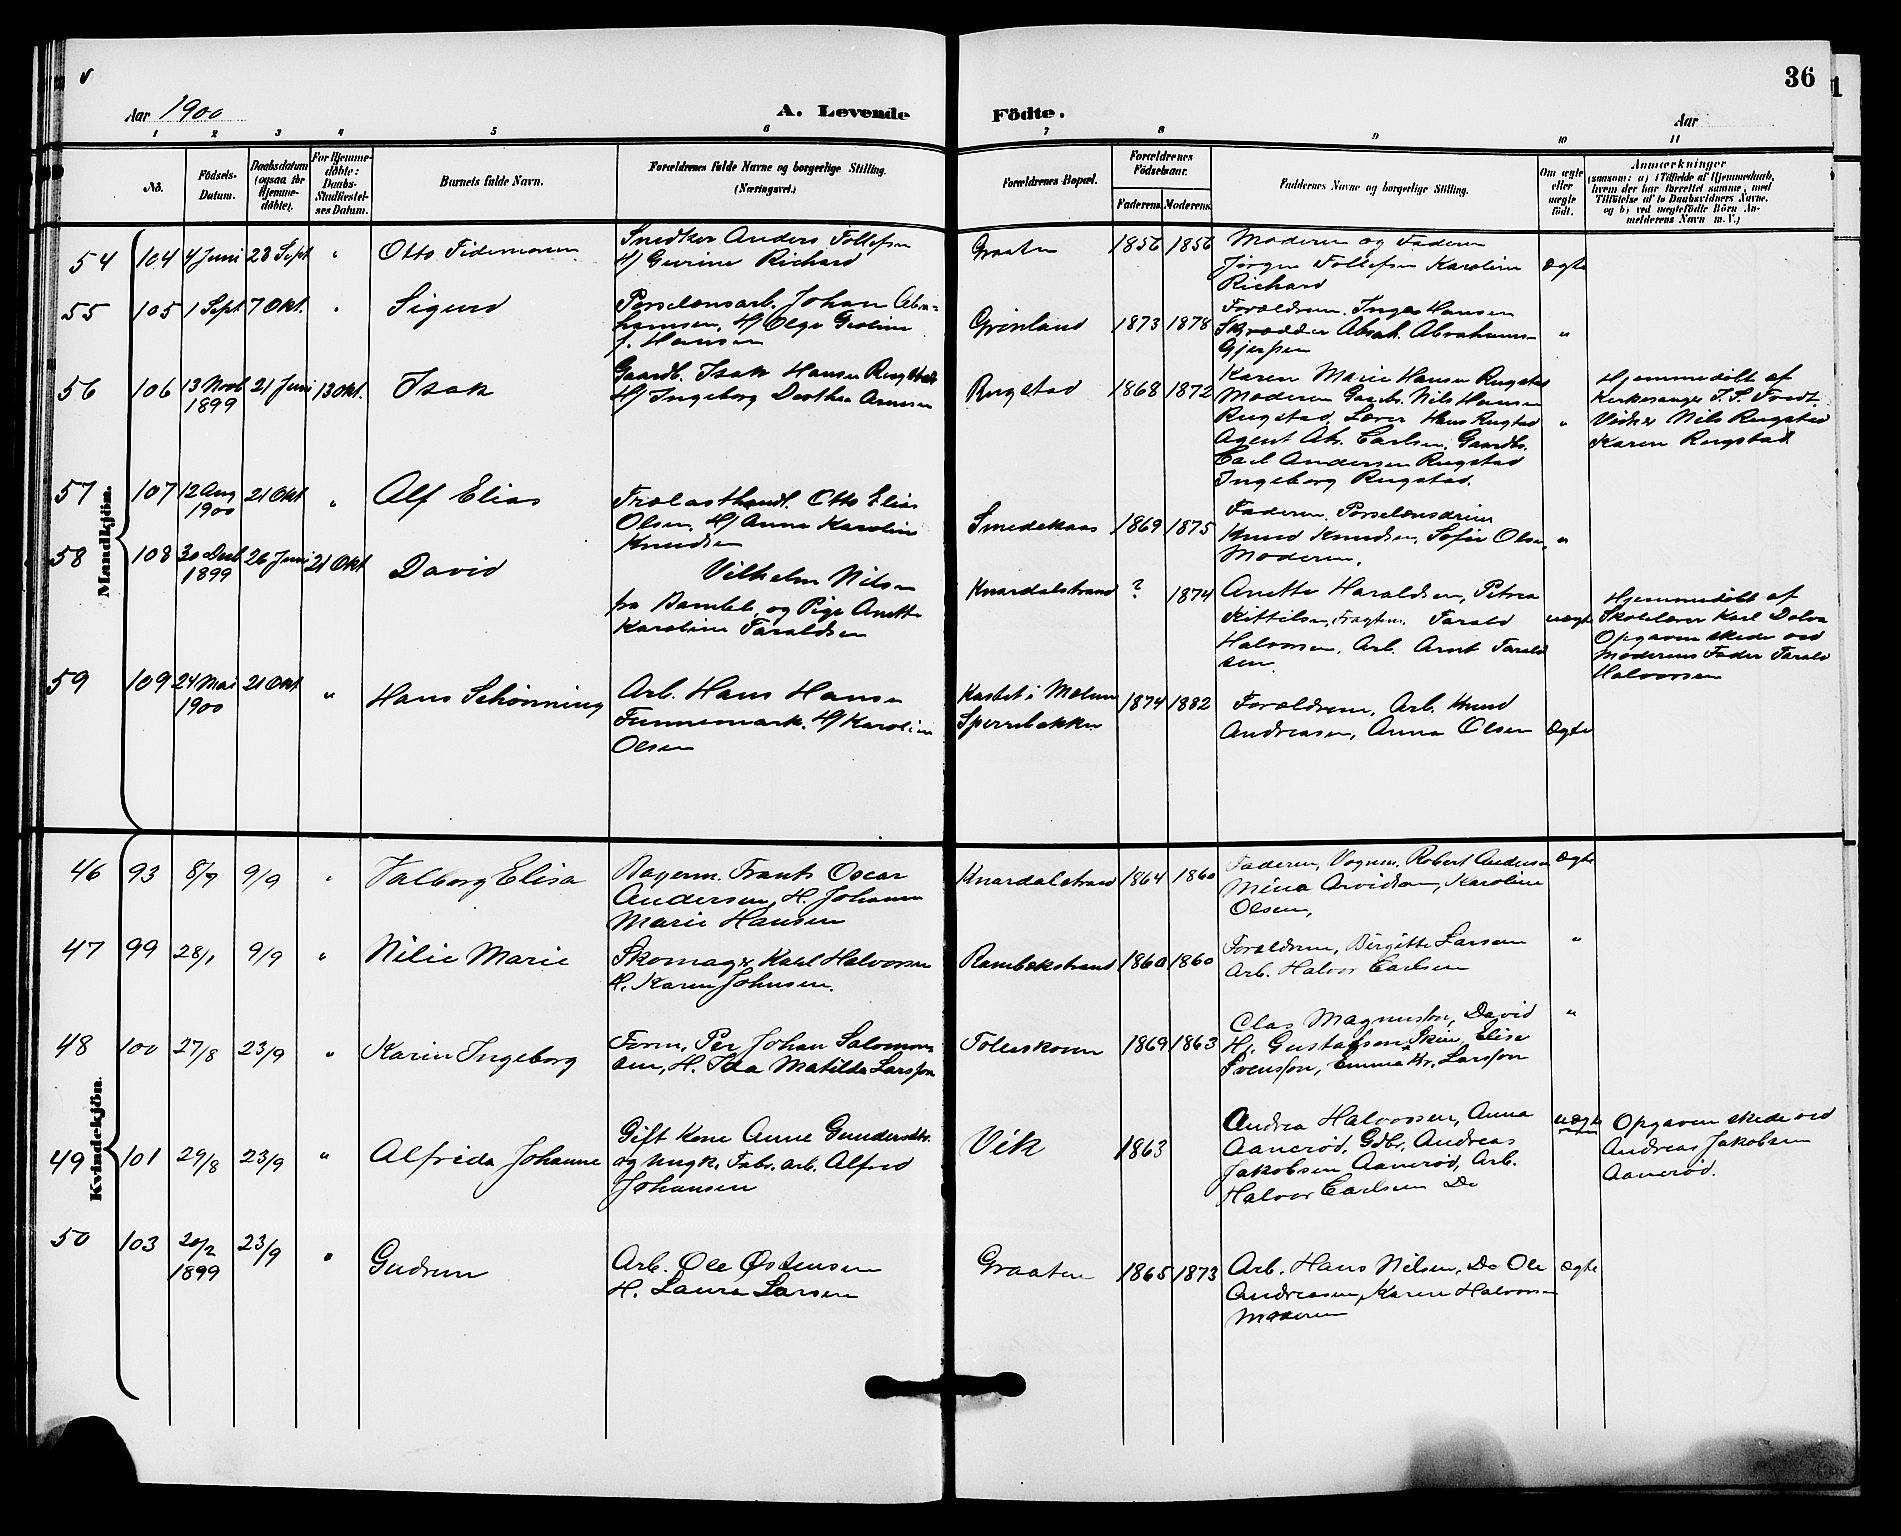 36
Aar 1900
A. Levende Födte.
Aar
1 2 3 4 5 6 7 8 9 10 11
No.
Födsels-Datum.
Daabsdatum (ogsaa for Hjemme-döbte).
For Hjemme-döbte: Daabs-Stadfæstel-ses Datum.
Barnets fulde Navn.
Forældrenes fulde Navne og borgerlige Stilling. (Næringsvei.)
Forældrenes Bopæl.
Forældrenes Födselsaar.
Faderens. Moderens.
Faddernes Navne og borgerlige Stilling.
Om ægte eller uægte födt.
Anmærkninger
(saasom: a) i Tilfælde af Hjemmedaab, hvem der har forrettet samme, med Tilföielse af to Daabsvidners Navne, og b) ved uægtefödte Börn An-melderens Navn m. V.)
Mandkjön.
54 104 4 Juni 23 Sept " Otto Tidemann
Snedker Anders Tollefsen
H/ Gurine Richard
Graaten 1856 1856
Moderen og Faderen
Jørgen Tollefsen Karoline
Richard
Ægte
55 105 1 Sept 7 Okt. " Sigurd
Porselænsarb. Johan Abra-
hamsen, H/ Olga Geoline
f. Hansen
Grinland 1873 1878
Forældrene. Inga Hansen
Skrædder Abrah. Abrahams-
Gjerpen
"
56 106 13 Novb 1899 21 Juni 13 Okt. Isak
Gaardb. Isak Hansen Rugstad
H/ Ingeborg Dorthea Amunsen
Rugstad 1868 1872
Karen Marie Hansen Rugstad
Moderen Gaardb. Nils Hansen
Rugstad, Lærer Hans Rugstad
Agent Ab. Carlsen, Gaardbr.
Carl Andersen Rugstad
Ingeborg Rugstad.
"
Hjemmedøbt af
Kirkesanger
Vidner Nils Rugstad
Karen Rugstad
57 107 12 Aug 1900 21 Okt " Alf Elias
Trælasthandl. Otto Elias
Olsen, H/ Anna Karoline
Knudsen
Smedekaas 1869 1875
Faderen. Porselænsdreier
Knud Knudsen, Sofie Olsen,
Moderen.
"
58 108 30 Decb 1899 26 Juni 21 Okt David
Vilhelm Nilsen
fra Bamble, og Pige Anette
Karoline Taraldsen
Knardalstrand ? 1874
Anette Haraldsen, Petrea
Kittilsen, Fragtem. Tarald
Halvorsen, Arb. Arnt Tarald
sen.
uægte
Hjemmedøbt af
Skolelærer Karl Dolva
Opgaven skede ved
Moderens Fader Tarald
Halvorsen
59 109 24 Mai 1900 21 Okt " Hans Schønning
Arb. Hans Hansen
Funnemark. H/ Karoline
Olsen
Kastet i Melum
Sperrebakken
1874 1882
Forældrene, Arb. Knud
Andreasen, Anna Olsen
Ægte
Kvindekjön.
46 93 8/7 9/9 " Valborg Elisa
Bagerm. Frants Oscar
Andersen, H. Johanne
Marie Hansen
Knardalstrand 1864 1860
Faderen, Vognm. Robert Andersen
Mina Arvidson, Karoline
Olsen,
Ægte
47 99 28/1 9/9 " Nilie Marie
Skomager Karl Halvorsen
H. Karen Johnsen.
Rambekstrand 1860 1860
Forældrene, Birgitte Larsen
Arb. Halvor Carlsen
"
48 100 27/8 23/9 " Karin Ingeborg
Form. Per Johan Salomons
sen, H. Ida Matilda Larsson
Tollerskoven 1869 1863
Clas Magnusson, David
Hj. Gustafsen Skien, Elise
Svensson, Emma Kr. Larsson
"
49 101 29/8 23/9 " Alfrida Johanne
Gift Kone Anne Gundersdtr.
og Ungk. Fabr. arb. Alfred
Johansen
Vik 1863
Andrea Halvorsen, Anna
Aanerød, Gdbr. Andreas
Jakobsen Aanerød, Arb.
Halvor Carlsen Do
uægte
Opgaven skede ved
Andreas Jakobsen
Aanerød.
50 103 20/2 1899 23/9 " Gudrun
Arb. Ole Østensen
H. Laura Larsen
Graaten 1865 1873
Arb. Hans Nilsen, Do Ole
Andreasen, Karen Halvorsen
Moderen
Ægte